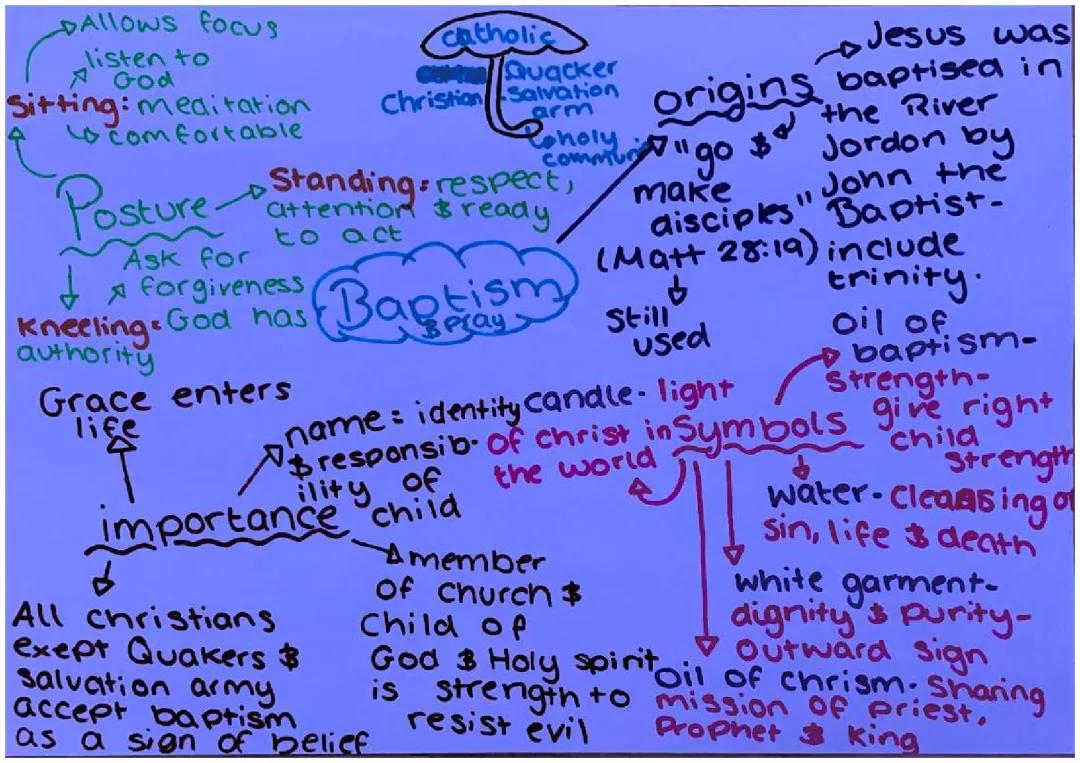 Allows focus
listen to
God
Sitting: meditation
comfortable
Posture
Standing: respect,
attention & ready
to act
Ask for
forgiveness
Kneeling: God has
authority
Catholic
Christian
Quacker
Salvation
arm
holy
communi
Baptism
& pray
origins
Jesus was
baptised in
the River
Jordon by
John the
Baptist-
include
trinity.
"go &
make
disciples"
(Matt 28:19)
Still
used
importance
Grace enters
life
name = identity
& responsib-
ility of
child
member
of church &
Child of
God & Holy spirit
is strength to
resist evil
All christians
exept Quakers &
salvation army
accept baptism
as a sign of belief
Symbols
candle- light
of christ in
the world
oil of
baptism-
strength-
give right
child
strength
water- cleansing of
sin, life & death
white garment-
dignity & purity-
outward sign
oil of chrism- Sharing
mission of priest,
Prophet & King